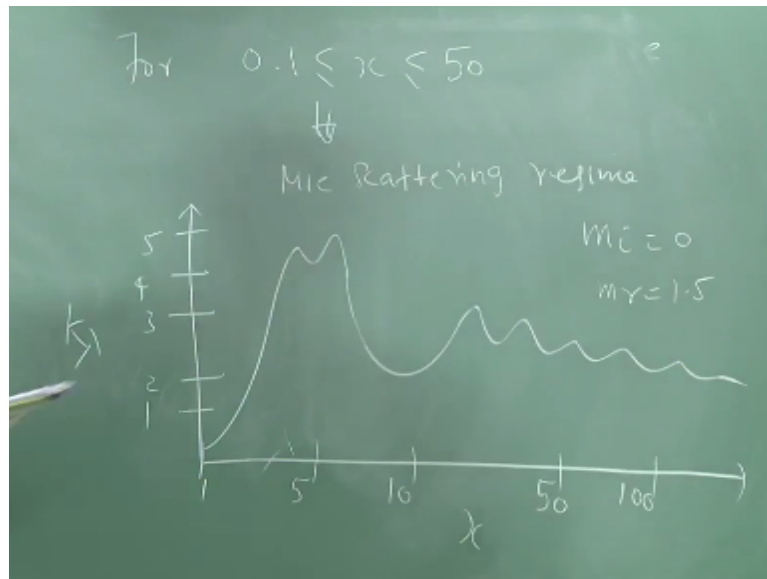 For 0.1 ≤ x ≤ 50
Mie Scattering regime
mi = 0
mr = 1.5
5
4
3
kλ
2
1
1 5 10 50 100
x